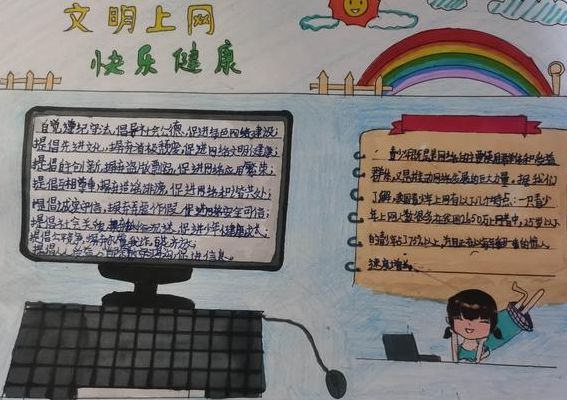 文明上网
快乐健康
自觉遵纪守法,倡导社会公德,促进绿色网络建设;
提倡先进文化,摒弃消极颓废,促进网络文明健康;
提倡自主创新,摒弃盗版剽窃,促进网络应用繁荣;
提倡互相尊重,摒弃造谣诽谤,促进网络和谐共处;
提倡诚实守信,摒弃弄虚作假,促进网络安全可信;
提倡社会关爱,摒弃低俗沉迷,促进少年健康成长;
提倡公平竞争,摒弃尔虞我诈,
提倡人人受益,促进信息
青少年
群体,又是推动网络发展的巨大力量,据我们
了解,我国青少年上网有以下几个特点:一只青少
年上网人数很多在全国1650万网民中,25岁以下
的青少年占75%以上,并且正在以每年翻一番的惊人
速度增